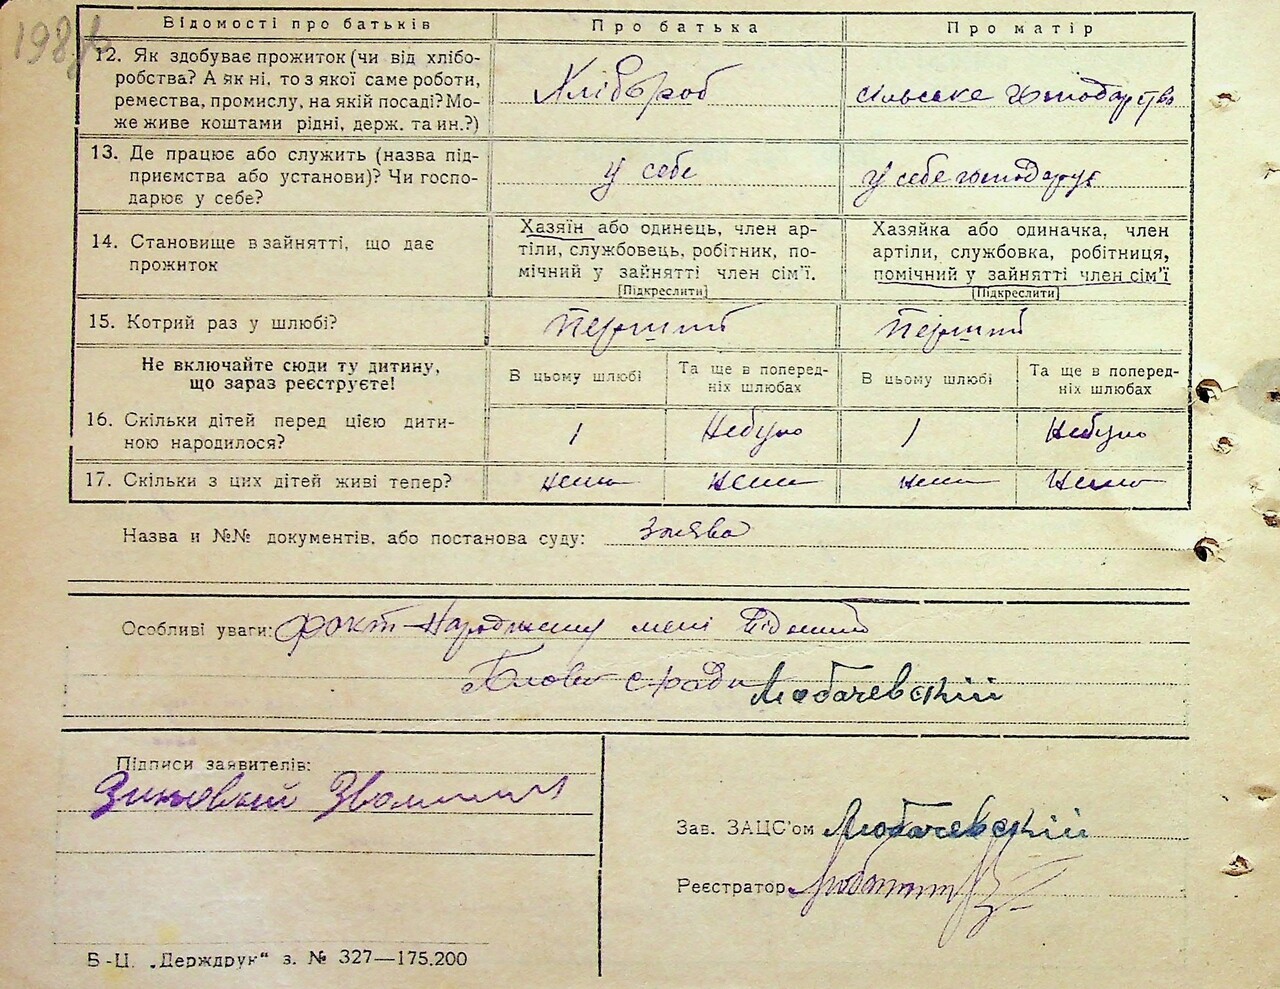 198
Відомості про батьків
Про батька
Про матір
12. Як здобуває прожиток (чи від хлібо-
робства? А як ні, то з якої саме роботи,
ремества, промислу, на якій посаді? Мо-
же живе коштами рідні, держ. та ин.?)
Хлібороб
сільське господарство
13. Де працює або служить (назва під-
приємства або установи)? Чи госпо-
дарює у себе?
у себе
у себе господарує
14. Становище в зайнятті, що дає
прожиток
Хазяїн або одинець, член ар-
тіли, службовець, робітник, по-
мічний у зайнятті член сім'ї.
[Підкреслити]
Хазяйка або одиначка, член
артіли, службовка, робітниця,
помічний у зайнятті член сім'ї
[Підкреслити]
15. Котрий раз у шлюбі?
Перший
Перший
Не включайте сюди ту дитину,
що зараз реєструєте!
В цьому шлюбі
Та ще в поперед-
ніх шлюбах
В цьому шлюбі
Та ще в поперед-
ніх шлюбах
16. Скільки дітей перед цією дити-
ною народилося?
1
Небуло
1
Небуло
17. Скільки з цих дітей живі тепер?
нема
нема
нема
нема
Назва и №№ документів, або постанова суду: заява
Особливі уваги: факт народження мені відомий
Голова с ради Любачевский
Підписи заявителів:
Зиньовкий
Зав. ЗАЦС'ом Любачевский
Реєстратор
Б-Ц. „Держдрук“ з. № 327—175.200